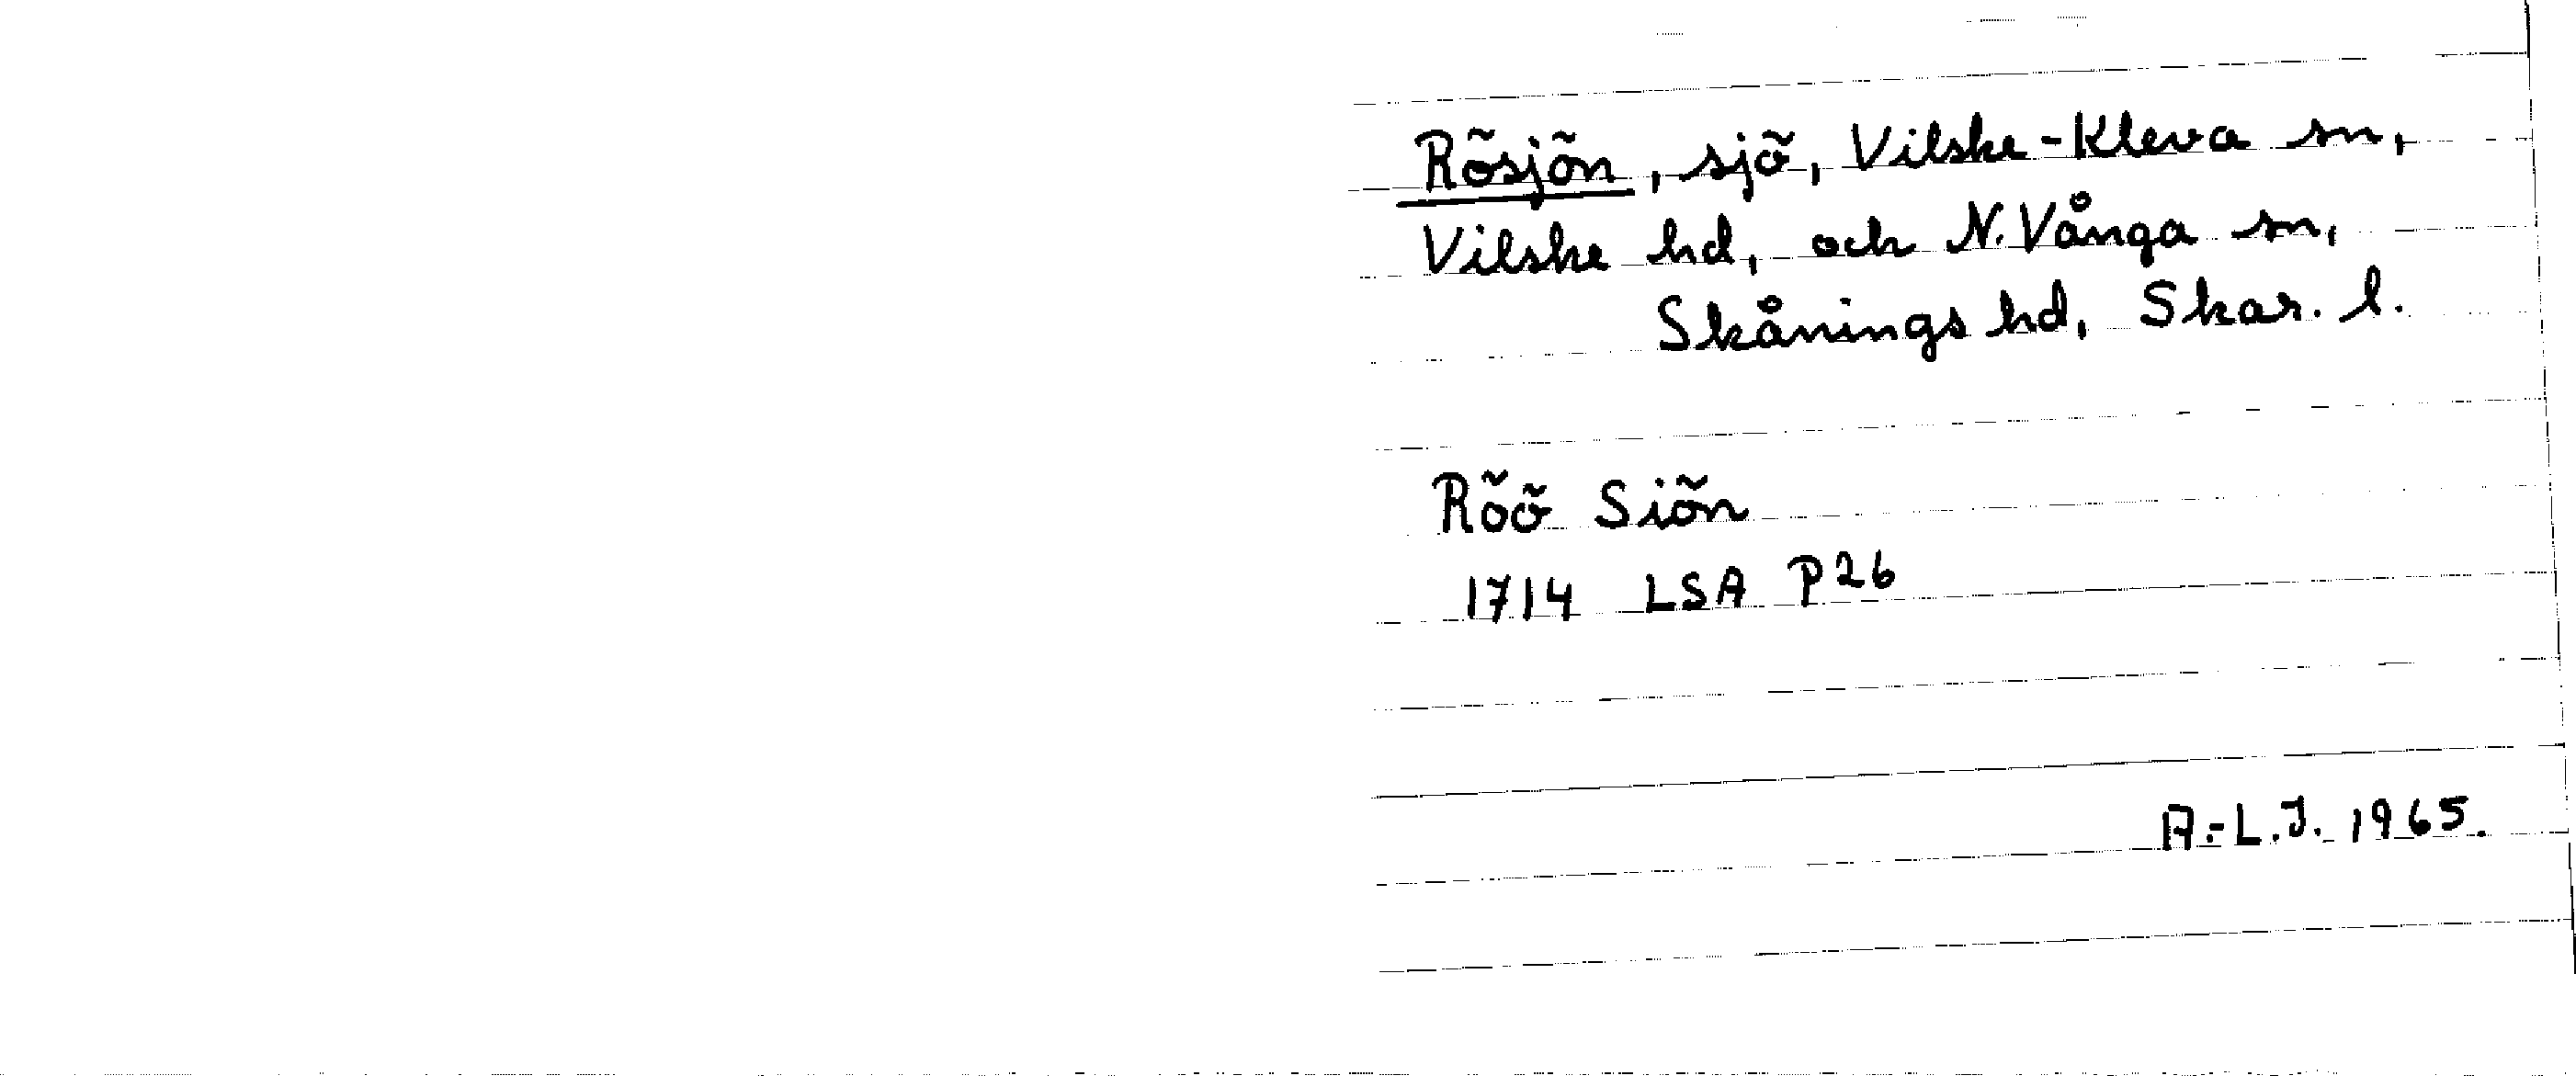 Rösjön, sjö, Vilske-Kleva sn,
Vilske hd, och N. Vånga sn,
Skånings hd, Skar. l.
Röö Siön
1714 LSA P26
A.-L.J. 1965.